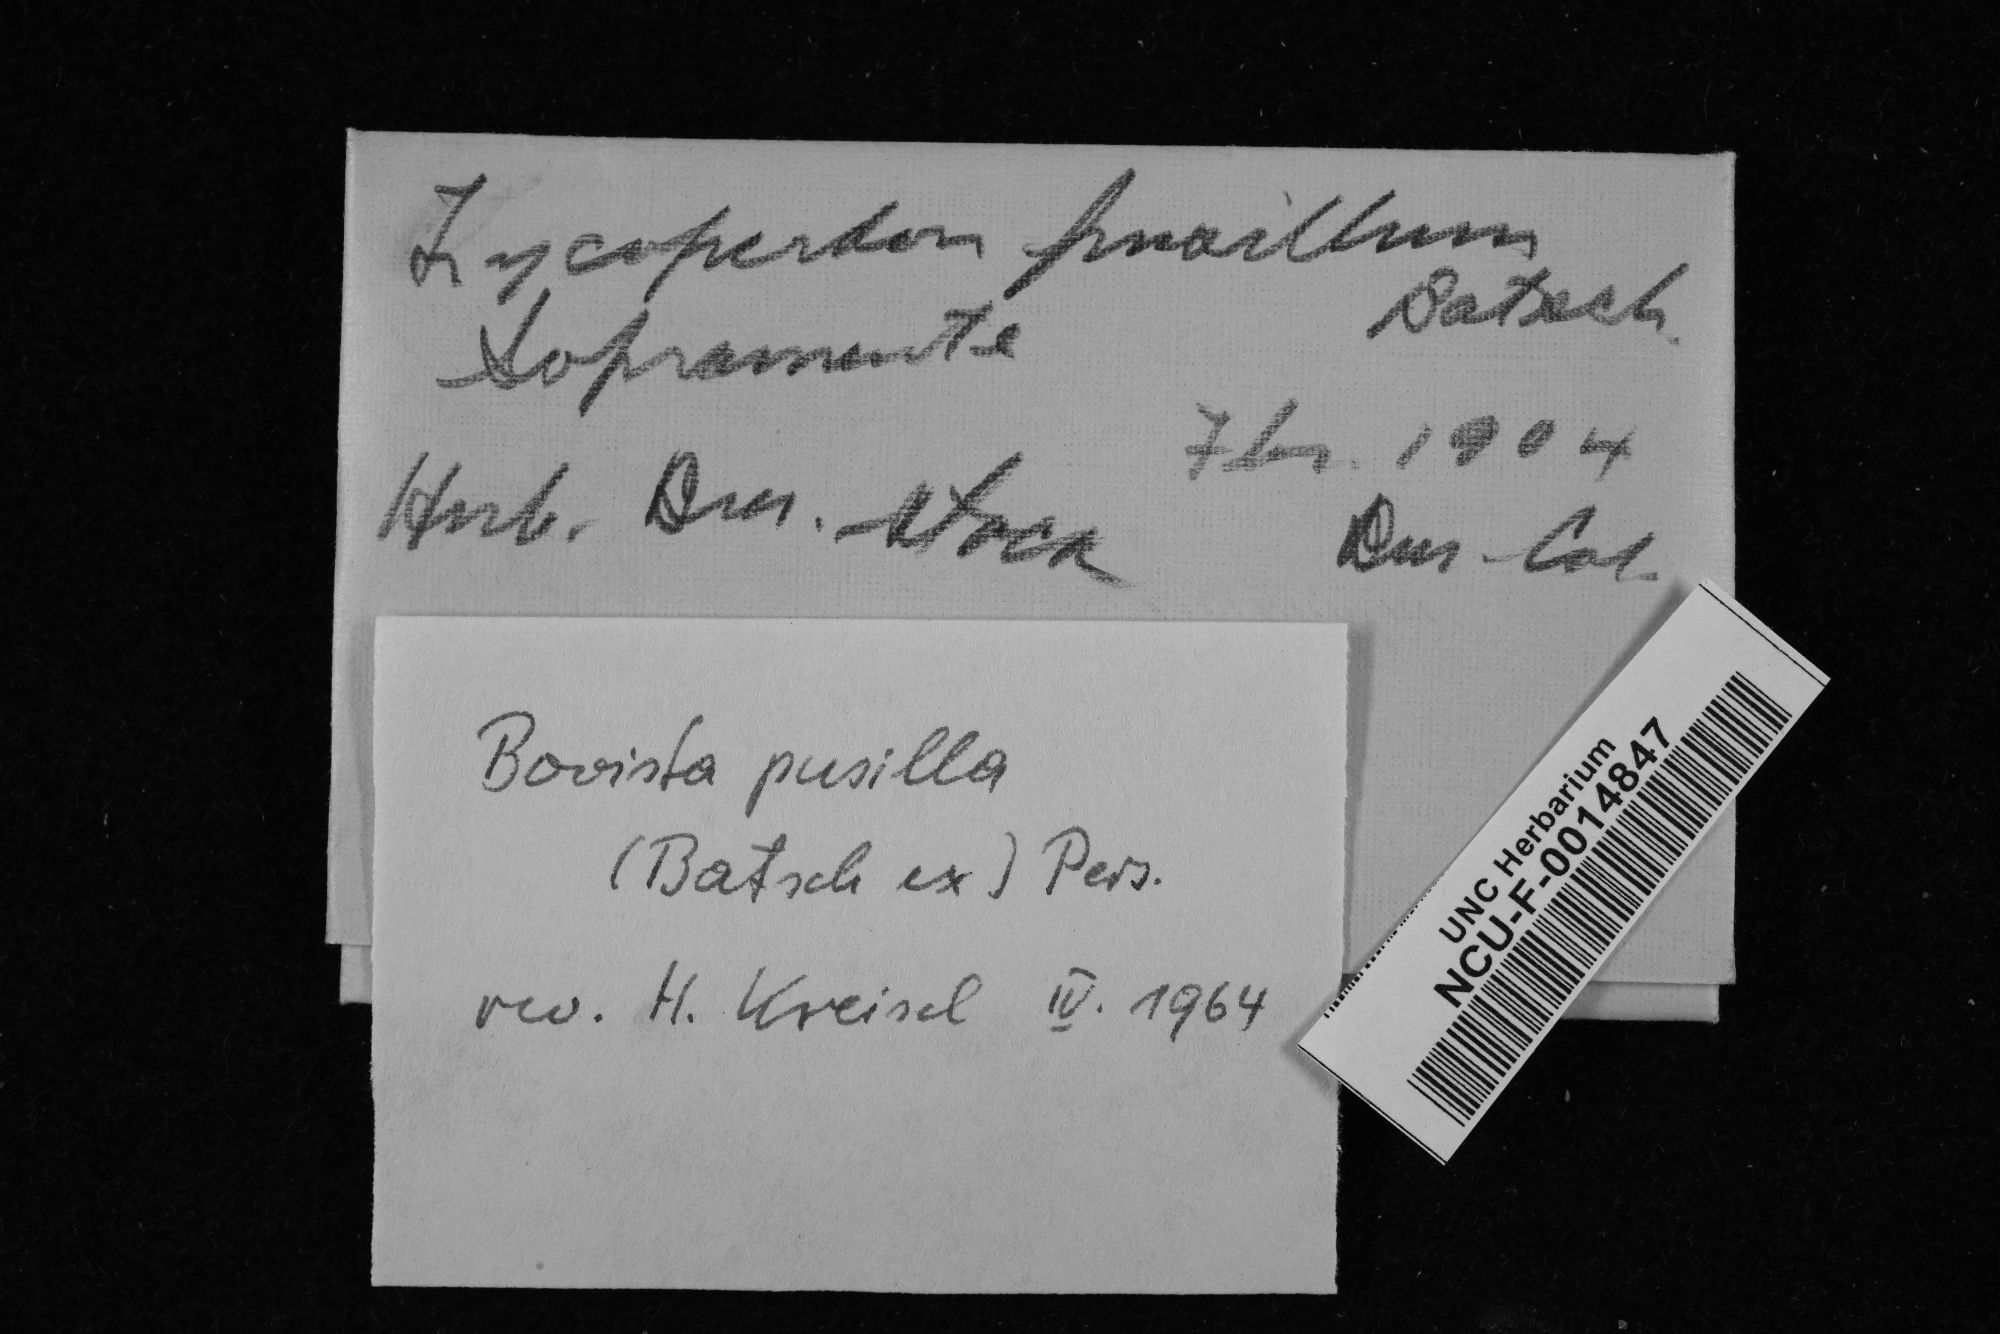 Lycoperdon pusillum
Batsch.
Sopramonte
7br. 1904
Herb. Bres. Stock
Bres. Col.
Bovista pusilla
(Batsch ex) Pers.
rev. H. Kreisel IV. 1964
UNC Herbarium
NCU-F-0014847